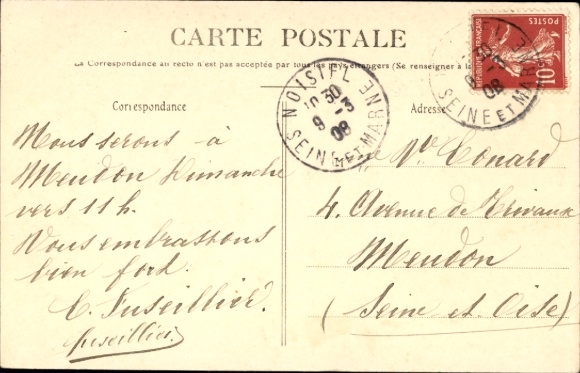 CARTE POSTALE
La Correspondance au recto n'est pas acceptée par tous les pays étrangers (Se renseigner à la
Correspondance
Adresse
Nous serons à
Meudon Dimanche
vers 11 h.
Vous embrassons
bien fort.
E. Fuseillier.
fuseillier
Vve Conard
4. Avenue de Trivaux
Meudon
(Seine et Oise)
NOISIEL
9 -3
08
SEINE ET MARNE
POSTES
RÉPUBLIQUE FRANÇAISE
10
SEINE ET MARNE
08